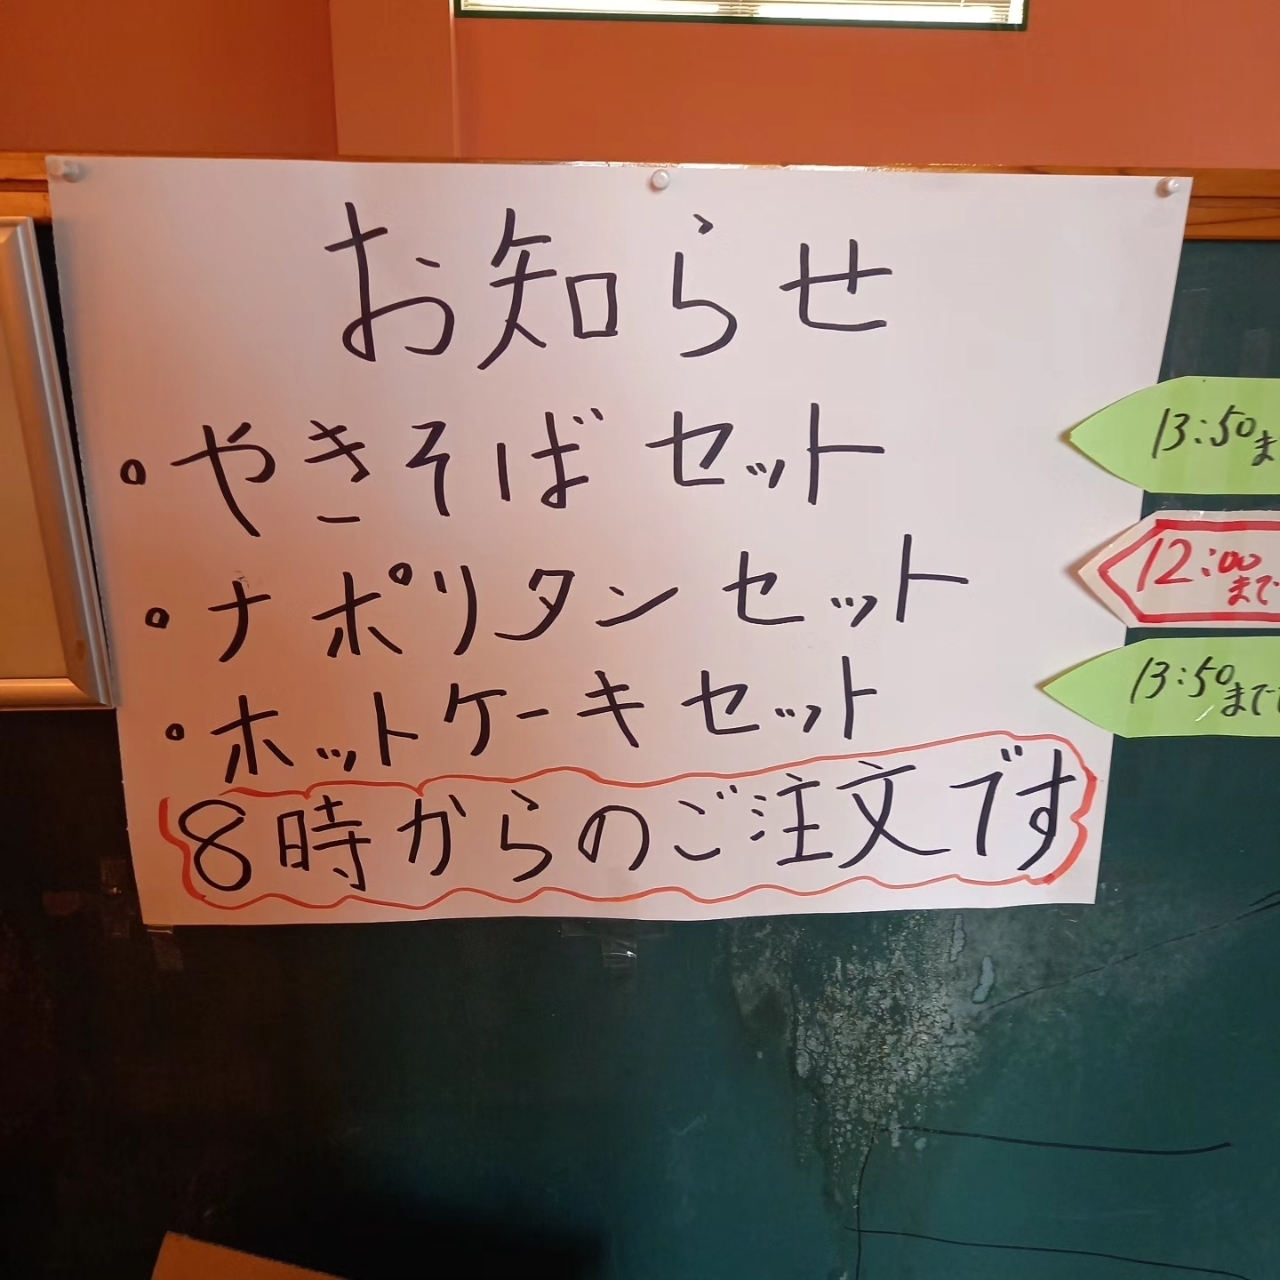 お知らせ
・やきそば セット
13:50ま
・ナポリタン セット
12:00
まで
・ホットケーキ セット
13:50まで
8時からのご注文です